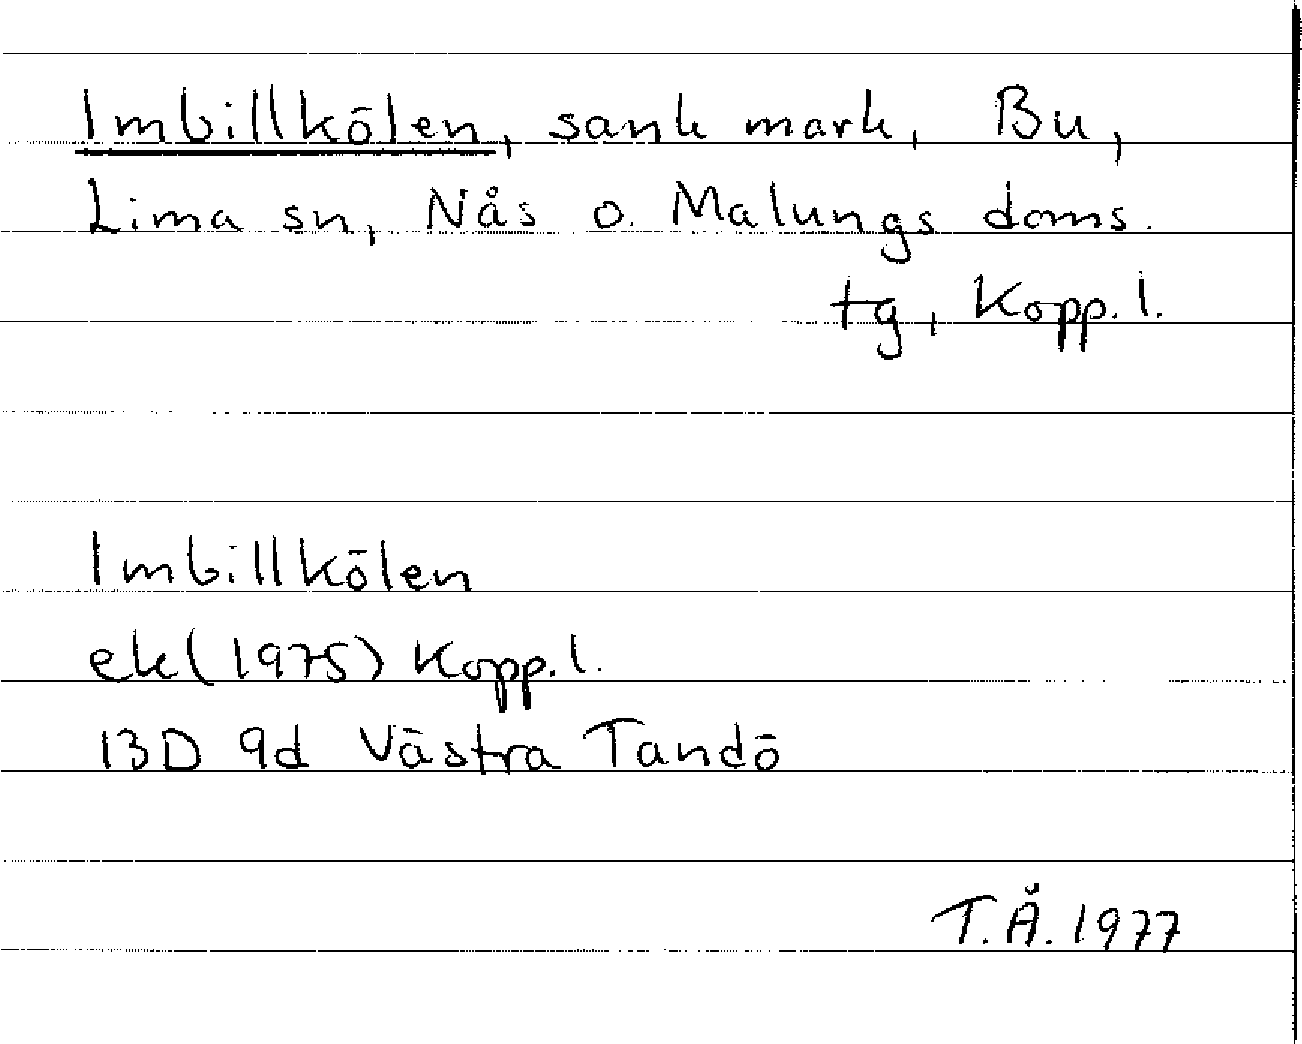 Imbillkölen, sank mark, Bu,
Lima sn, Nås o. Malungs doms.
tg, Kopp.l.
Imbillkölen
ek(1975) Kopp.l.
13D 9d Västra Tandö
T.Å.1977